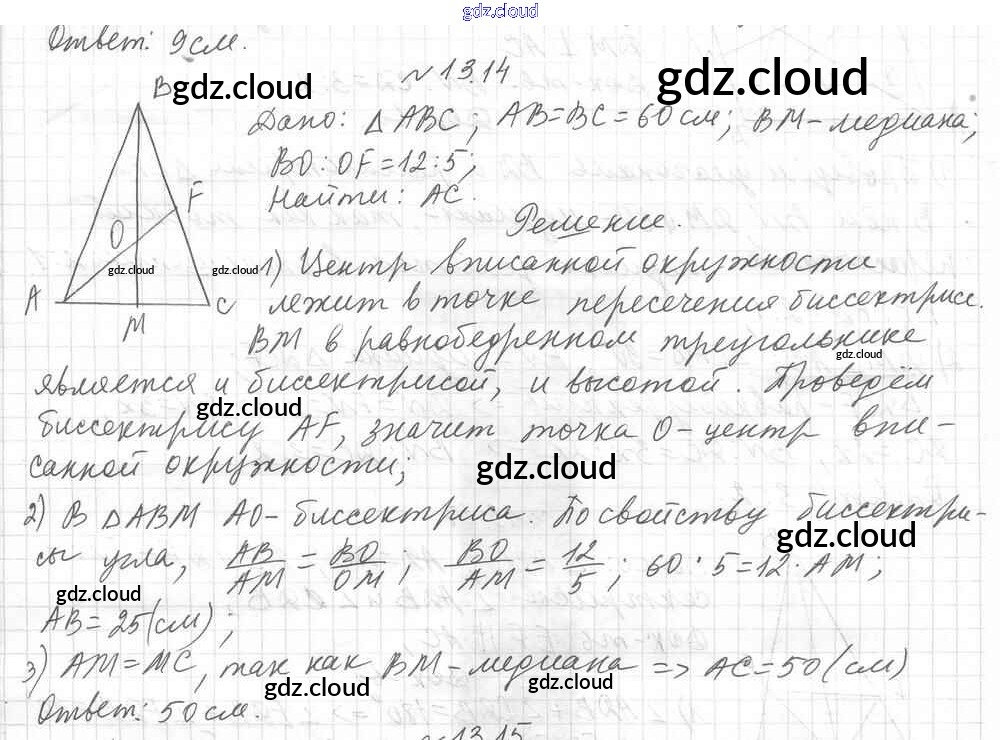 gdz.cloud
Ответ: 9 см.
№ 13.14
gdz.cloud
gdz.cloud
B
F
O
A
C
M
gdz.cloud
gdz.cloud
Дано: △ABC; AB=BC=60см; BM-медиана;
BO:OF=12:5;
Найти: AC.
Решение.
1) Центр вписанной окружности
лежит в точке пересечения биссектрис.
BM в равнобедренном треугольнике
gdz.cloud
является и биссектрисой, и высотой. Проведём
gdz.cloud
биссектрису AF, значит точка O-центр впи-
санной окружности;
gdz.cloud
2) В △ABM AO-биссектриса. По свойству биссектри-
gdz.cloud
сы угла, AB/AM = BO/OM; BO/AM = 12/5; 60·5=12·AM;
gdz.cloud
AB=25(см);
3) AM=MC, так как BM-медиана => AC=50(см)
gdz.cloud
gdz.cloud
Ответ: 50см.
№13.15